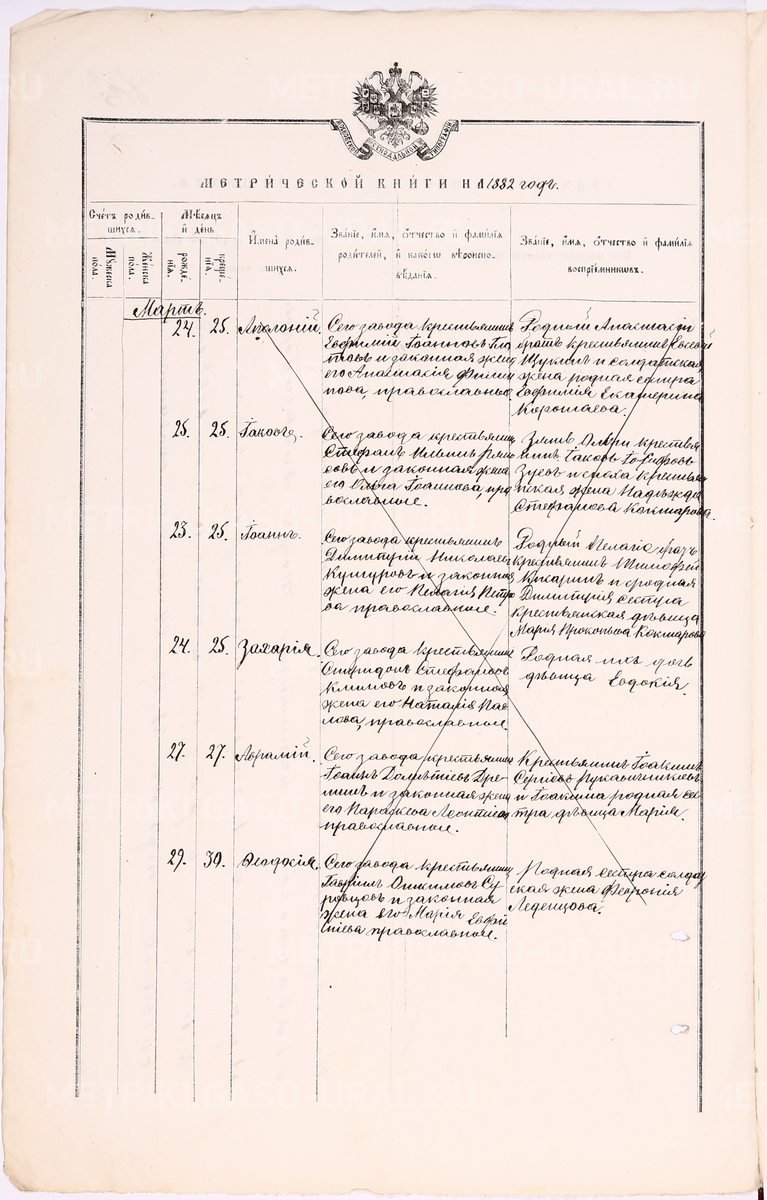 МЕТРИЧЕСКОЙ КНИГИ НА 1882 годъ.
Счетъ родив-
шихся.
Мужеска
пола.
Женска
пола.
Мѣсяцъ
и день
рожде-
нія.
креще-
нія.
Имена родив-
шихся.
Званіе, имя, отчество и фамилія
родителей, и какого вѣроиспо-
вѣданія.
Званіе, имя, отчество и фамилія
воспріемниковъ.
Мартъ.
24. 25. Аполоній.
Сего завода крестьянинъ
Евфимій Іоанновъ
и законная жена
его Анастасія Филип
пова, православные
Родный Анастасіи
братъ крестьянинъ Евсевій
Щукинъ и солдатская
жена родная сестра
Евфимія Екатерина
25. 25. Іаковъ.
Сего завода крестьянинъ
Стефанъ Ильинъ
и законная жена
его Ольга Іоаннова, пра
вославные.
Зять Ольги крестья
нинъ Іаковъ Іосифовъ
Зуевъ и сноха крестьян
ская жена Надежда
Стефанова Кокшарова.
23. 25. Іоаннъ.
Сего завода крестьянинъ
Димитрій Николаевъ
и законная
жена его Пелагія Петро
ва православные.
Родный Пелагіи братъ
крестьянинъ Тимофей
и сродная
Димитрія сестра
крестьянская дѣвица
Марія Прокопьева Кокшарова
24. 25. Захарія.
Сего завода крестьянинъ
Спиридонъ Стефановъ
Климовъ и законная
жена его Наталія Пав
лова, православные.
Родная ихъ дочь
дѣвица Евдокія.
27. 27. Авраамій.
Сего завода крестьянинъ
Іоаннъ
и законная жена
его Параскева Леонтіева
православные.
Крестьянинъ Іоакимъ
Сергіевъ Рукавишниковъ
и Іоакима родная сес
тра дѣвица Марія.
29. 30. Ѳеодосія.
Сего завода крестьянинъ
Гавріилъ Онисимовъ Су
ровцовъ и законная
жена его Марія Евфи
міева православные.
Родная сестра солдат
ская жена Февронія
Леденцова.
METRIKI.GASO-URAL.RU